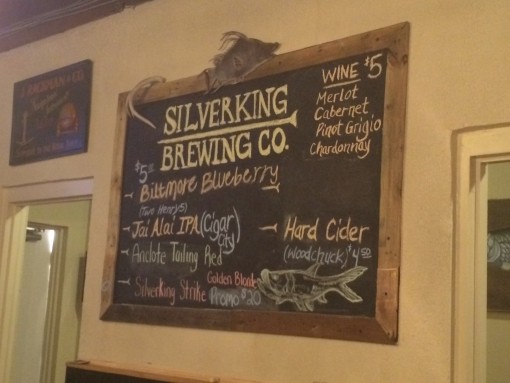 SILVERKING
BREWING CO.
WINE $5
Merlot
Cabernet
Pinot Grigio
Chardonnay
$5.00
Biltmore Blueberry
(Two Henrys)
Jai Alai IPA (Cigar City)
Anclote Tailing Red
Silverking Strike Golden Blonde
Promo $20
Hard Cider
(Woodchuck) $4.50